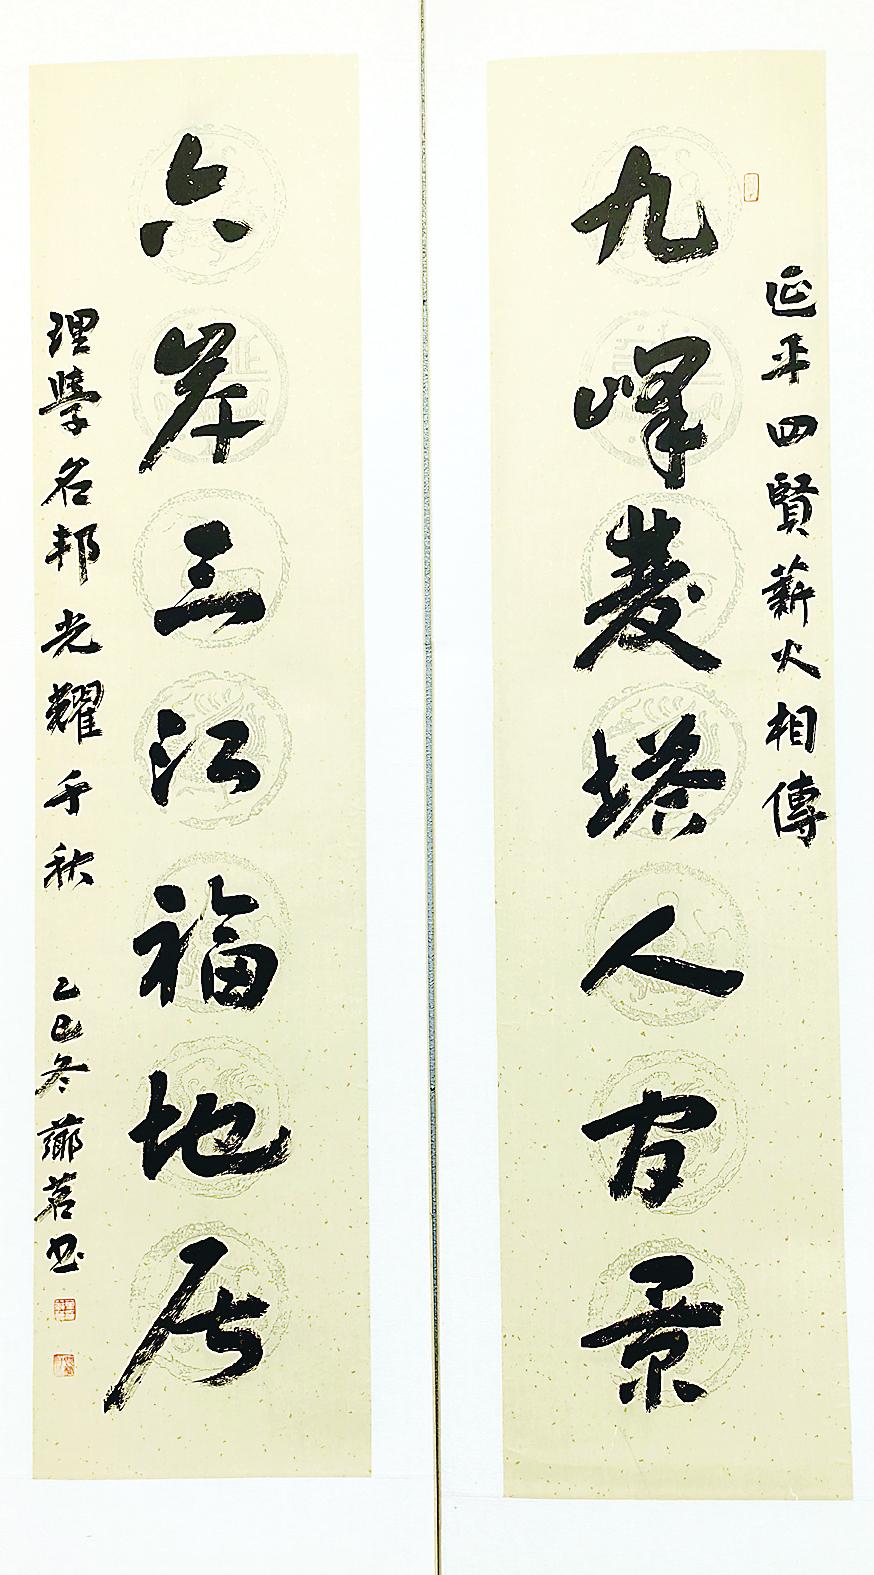 延平四賢薪火相傳
九峰雙塔人间景
六岸三江福地居
理學名邦光耀千秋 乙巳冬薌茗书